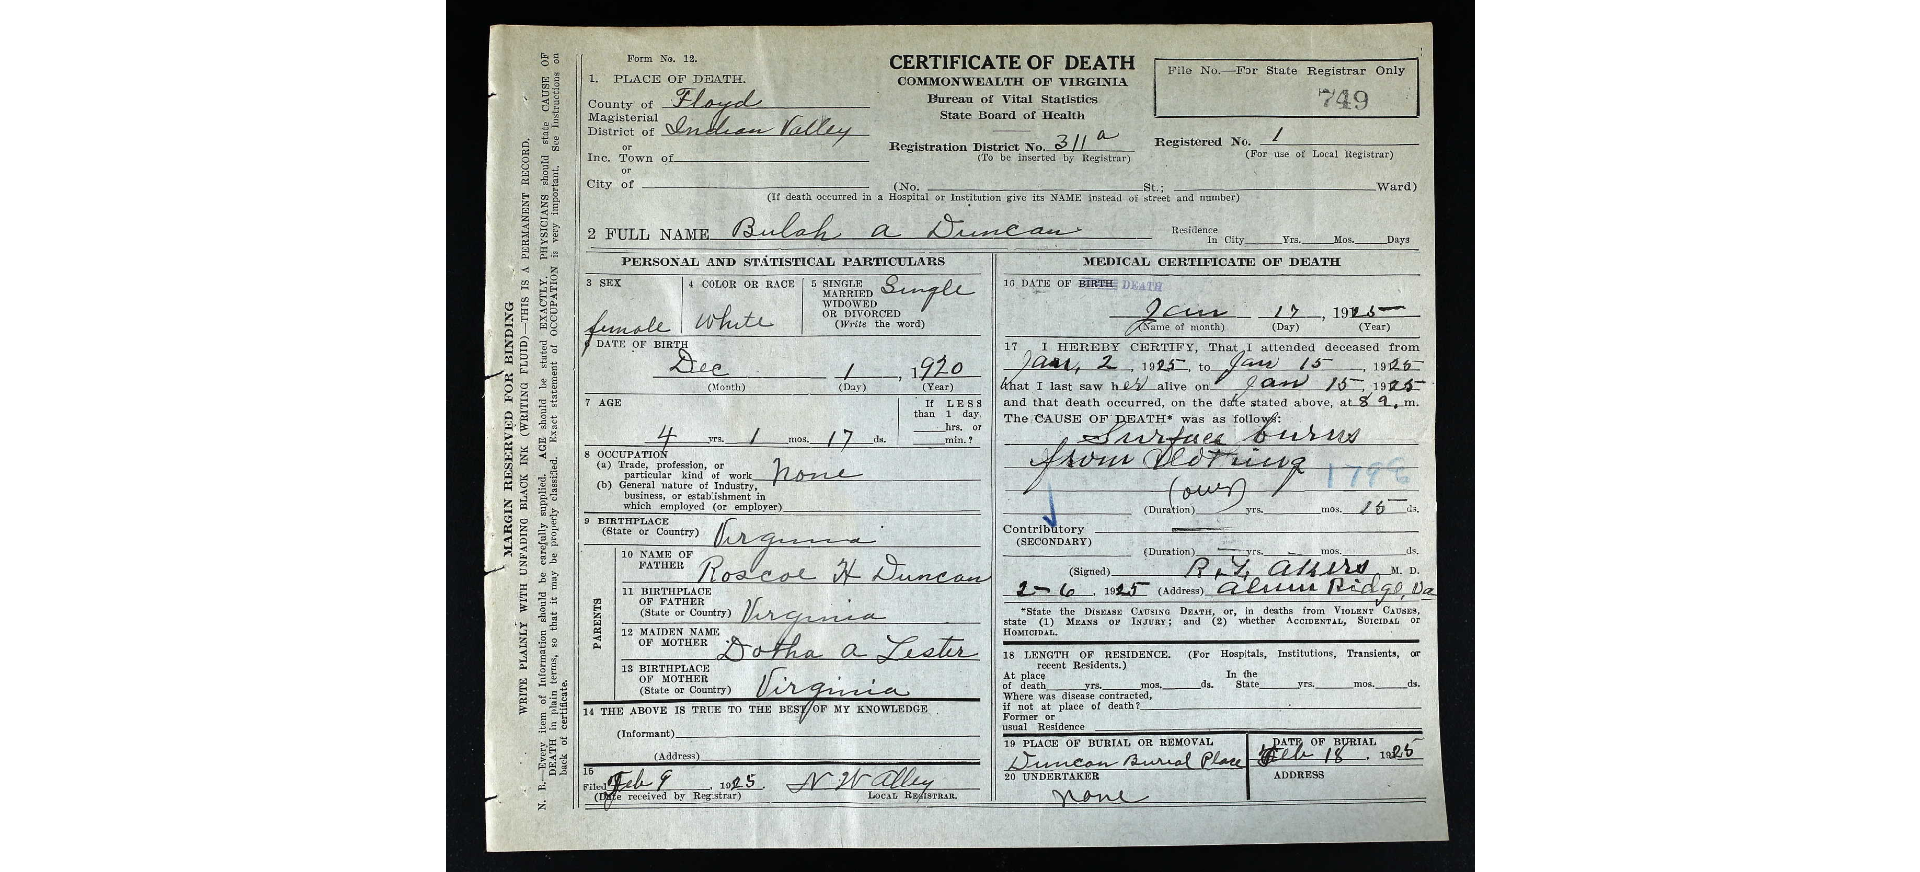 Form No. 12.
1. PLACE OF DEATH.
County of Floyd
Magisterial
District of Indian Valley
or
Inc. Town of
or
City of
CERTIFICATE OF DEATH
COMMONWEALTH OF VIRGINIA
Bureau of Vital Statistics
State Board of Health
Registration District No. 311 a
(To be inserted by Registrar)
File No.—For State Registrar Only
749
Registered No. 1
(For use of Local Registrar)
(No. St.; Ward)
(If death occurred in a Hospital or Institution give its NAME instead of street and number)
2 FULL NAME Bulah a Duncan
Residence
In City Yrs. Mos. Days
PERSONAL AND STATISTICAL PARTICULARS
3 SEX
female
4 COLOR OR RACE
White
5 SINGLE
MARRIED
WIDOWED
OR DIVORCED
(Write the word)
Single
6 DATE OF BIRTH
Dec 1, 1920
(Month) (Day) (Year)
7 AGE
4 yrs. 1 mos. 17 ds.
If LESS
than 1 day,
hrs. or
min.?
8 OCCUPATION
(a) Trade, profession, or
particular kind of work None
(b) General nature of Industry,
business, or establishment in
which employed (or employer)
9 BIRTHPLACE
(State or Country) Virginia
PARENTS
10 NAME OF
FATHER Roscoe H Duncan
11 BIRTHPLACE
OF FATHER
(State or Country) Virginia
12 MAIDEN NAME
OF MOTHER Dotha a Lester
13 BIRTHPLACE
OF MOTHER
(State or Country) Virginia
14 THE ABOVE IS TRUE TO THE BEST OF MY KNOWLEDGE
(Informant)
(Address)
15
Filed Feb 9, 1925. N W Alley
(Date received by Registrar) LOCAL REGISTRAR.
MEDICAL CERTIFICATE OF DEATH
16 DATE OF BIRTH DEATH
Jan 17, 1925
(Name of month) (Day) (Year)
17 I HEREBY CERTIFY, That I attended deceased from
Jan, 2, 1925, to Jan 15, 1925
that I last saw her alive on Jan 15, 1925
and that death occurred, on the date stated above, at 8 a. m.
The CAUSE OF DEATH* was as follows:
Surface burns
from Clothing
(over) 179
(Duration) yrs. mos. 15 ds.
Contributory
(SECONDARY)
(Duration) yrs. mos. ds.
(Signed) Akers M. D.
2-6, 1925 (Address) Alum Ridge, Va
*State the DISEASE CAUSING DEATH, or, in deaths from VIOLENT CAUSES,
state (1) MEANS OF INJURY; and (2) whether ACCIDENTAL, SUICIDAL or
HOMICIDAL.
18 LENGTH OF RESIDENCE. (For Hospitals, Institutions, Transients, or
recent Residents.)
At place In the
of death yrs. mos. ds. State yrs. mos. ds.
Where was disease contracted,
if not at place of death?
Former or
usual Residence
19 PLACE OF BURIAL OR REMOVAL
Duncan Burial Place
DATE OF BURIAL
Feb 18, 1925
20 UNDERTAKER
none
ADDRESS
MARGIN RESERVED FOR BINDING
WRITE PLAINLY WITH UNFADING BLACK INK (WRITING FLUID)—THIS IS A PERMANENT RECORD.
N. B.—Every item of Information should be carefully supplied. AGE should be stated EXACTLY. PHYSICIANS should state CAUSE OF
DEATH in plain terms, so that it may be properly classified. Exact statement of OCCUPATION is very important. See Instructions on
back of certificate.